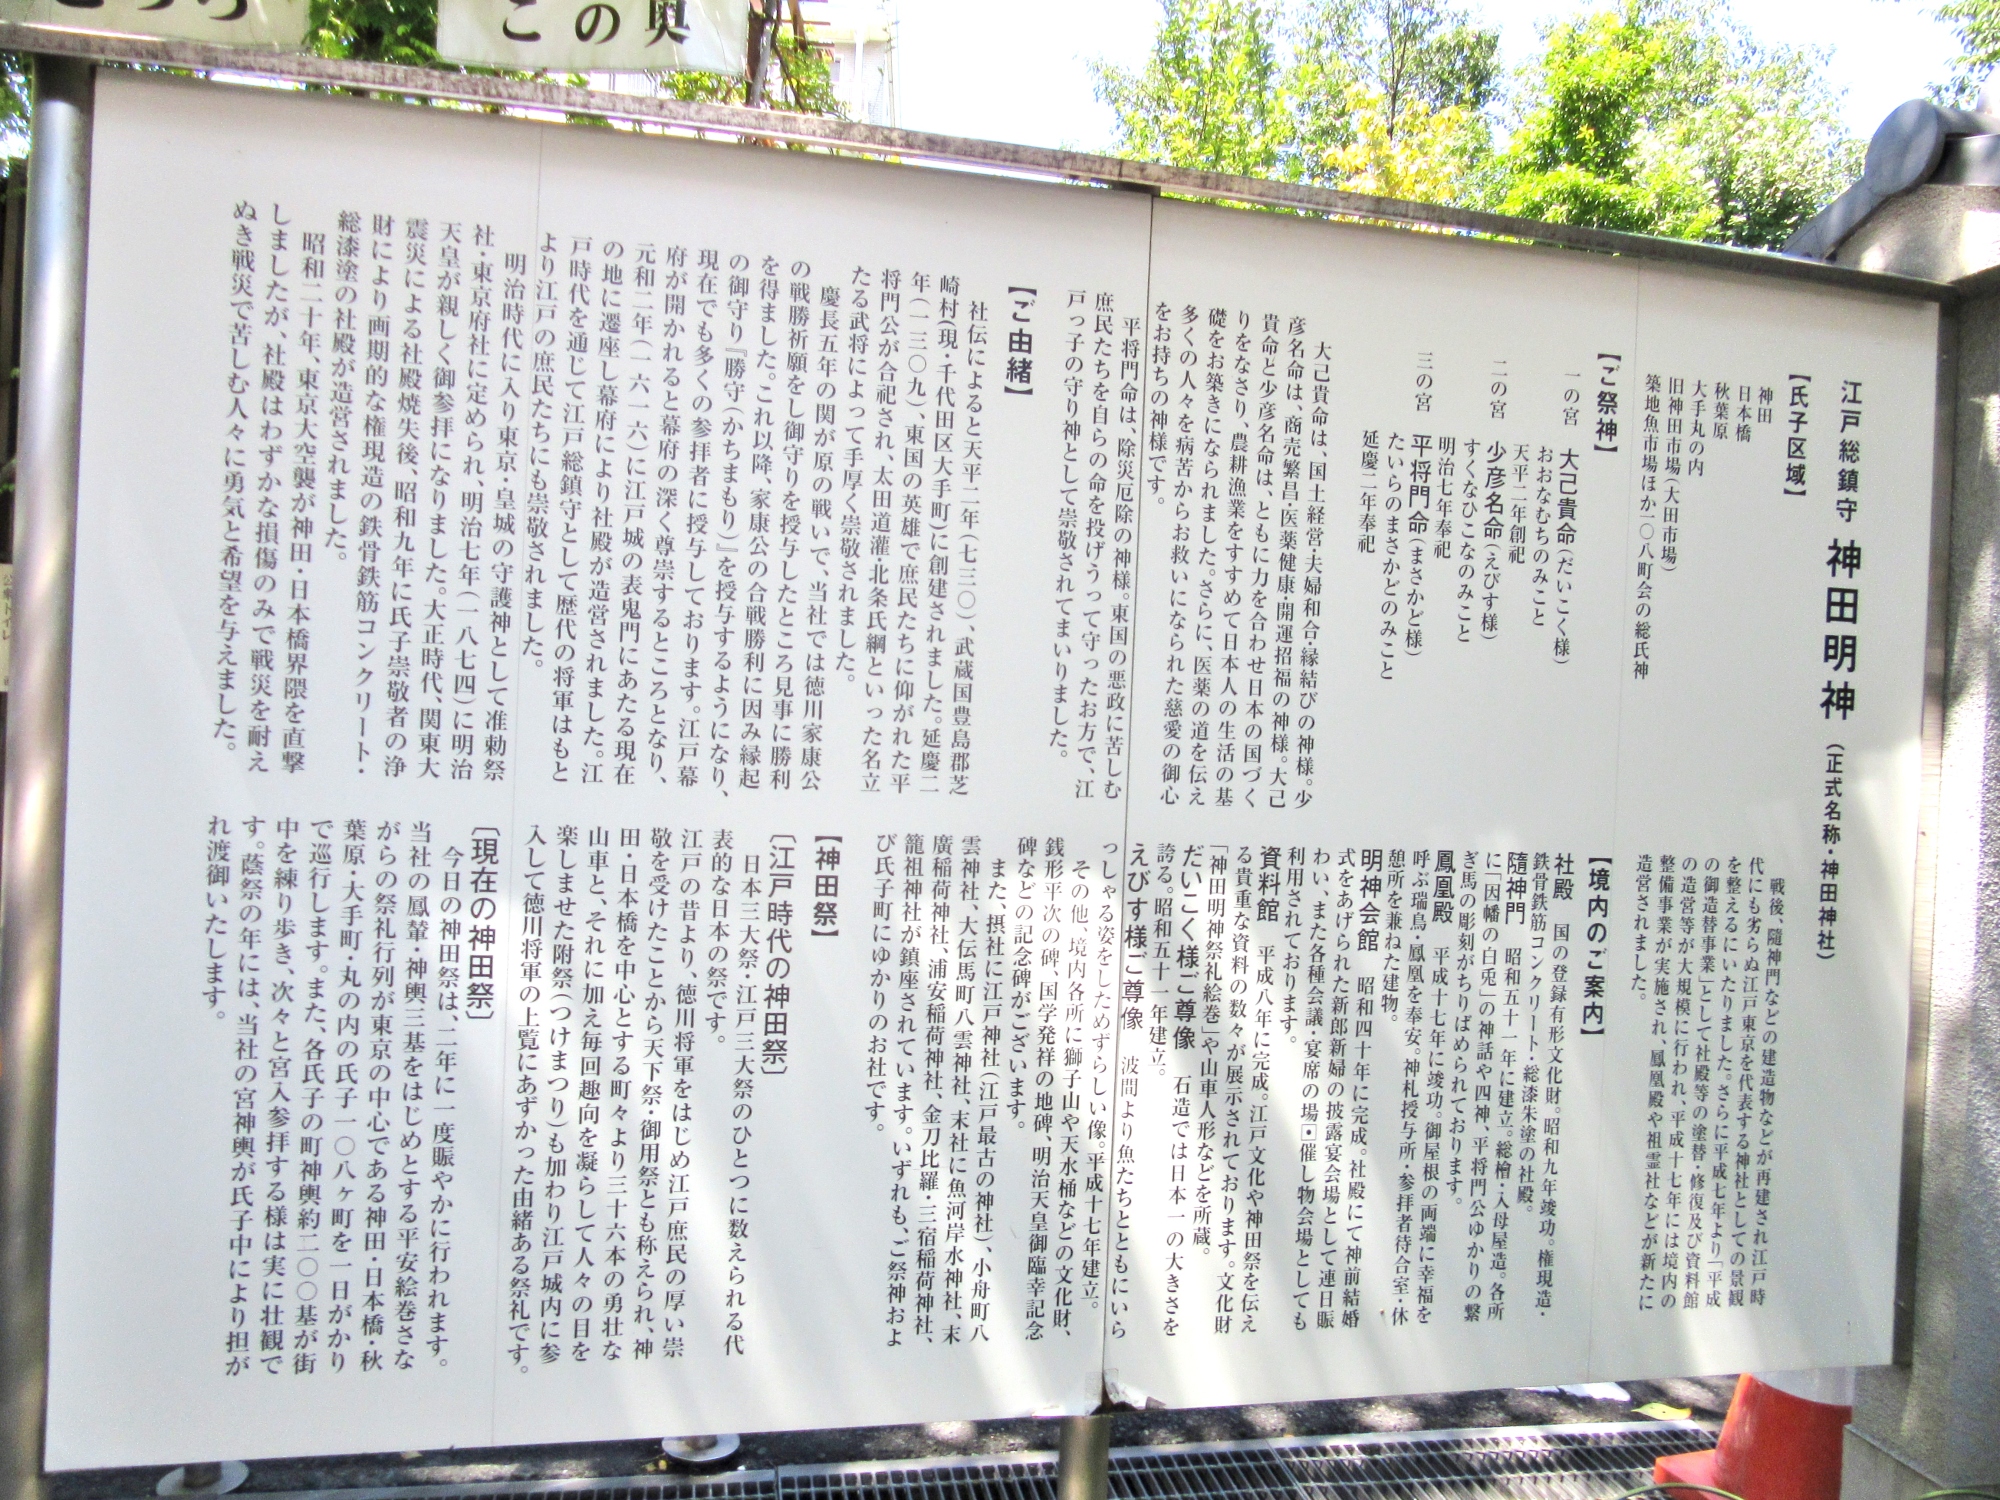 この奥
江戸総鎮守 神田明神（正式名称・神田神社）
【氏子区域】
神田
日本橋
秋葉原
大手丸の内
旧神田市場（大田市場）
築地魚市場ほか一〇八町会の総氏神
【ご祭神】
一の宮 大己貴命（だいこく様）
おおなむちのみこと
天平二年創祀
二の宮 少彦名命（えびす様）
すくなひこなのみこと
明治七年奉祀
三の宮 平将門命（まさかど様）
たいらのまさかどのみこと
延慶二年奉祀
大己貴命は、国土経営・夫婦和合・縁結びの神様。少
彦名命は、商売繁昌・医薬健康・開運招福の神様。大己
貴命と少彦名命は、ともに力を合わせ日本の国づく
りをなさり、農耕漁業をすすめて日本人の生活の基
礎をお築きになられました。さらに、医薬の道を伝え
多くの人々を病苦からお救いになられた慈愛の御心
をお持ちの神様です。
平将門命は、除災厄除の神様。東国の悪政に苦しむ
庶民たちを自らの命を投げうって守ったお方で、江
戸っ子の守り神として崇敬されてまいりました。
【ご由緒】
社伝によると天平二年（七三〇）、武蔵国豊島郡芝
崎村（現・千代田区大手町）に創建されました。延慶二
年（一三〇九）、東国の英雄で庶民たちに仰がれた平
将門公が合祀され、太田道灌・北条氏綱といった名立
たる武将によって手厚く崇敬されました。
慶長五年の関が原の戦いで、当社では徳川家康公
の戦勝祈願をし御守りを授与したところ見事に勝利
を得ました。これ以降、家康公の合戦勝利に因み縁起
の御守り『勝守（かちまもり）』を授与するようになり、
現在でも多くの参拝者に授与しております。江戸幕
府が開かれると幕府の深く尊崇するところとなり、
元和二年（一六一六）に江戸城の表鬼門にあたる現在
の地に遷座し幕府により社殿が造営されました。江
戸時代を通じて江戸総鎮守として歴代の将軍はもと
より江戸の庶民たちにも崇敬されました。
明治時代に入り東京・皇城の守護神として准勅祭
社・東京府社に定められ、明治七年（一八七四）に明治
天皇が親しく御参拝になりました。大正時代、関東大
震災による社殿焼失後、昭和九年に氏子崇敬者の浄
財により画期的な権現造の鉄骨鉄筋コンクリート・
総漆塗の社殿が造営されました。
昭和二十年、東京大空襲が神田・日本橋界隈を直撃
しましたが、社殿はわずかな損傷のみで戦災を耐え
ぬき戦災で苦しむ人々に勇気と希望を与えました。
戦後、隨神門などの建造物などが再建され江戸時
代にも劣らぬ江戸東京を代表する神社としての景観
を整えるにいたりました。さらに平成七年より「平成
の御造替事業」として社殿等の塗替・修復及び資料館
の造営等が大規模に行われ、平成十七年には境内の
整備事業が実施され、鳳凰殿や祖霊社などが新たに
造営されました。
【境内のご案内】
社殿 国の登録有形文化財。昭和九年竣功。権現造・
鉄骨鉄筋コンクリート・総漆朱塗の社殿。
隨神門 昭和五十一年に建立。総檜・入母屋造。各所
に「因幡の白兎」の神話や四神、平将門公ゆかりの繋
ぎ馬の彫刻がちりばめられております。
鳳凰殿 平成十七年に竣功。御屋根の両端に幸福を
呼ぶ瑞鳥・鳳凰を奉安。神札授与所・参拝者待合室・休
憩所を兼ねた建物。
明神会館 昭和四十年に完成。社殿にて神前結婚
式をあげられた新郎新婦の披露宴会場として連日賑
わい、また各種会議・宴席の場・催し物会場としても
利用されております。
資料館 平成八年に完成。江戸文化や神田祭を伝え
る貴重な資料の数々が展示されております。文化財
「神田明神祭礼絵巻」や山車人形などを所蔵。
だいこく様ご尊像 石造では日本一の大きさを
誇る。昭和五十一年建立。
えびす様ご尊像 波間より魚たちとともにいら
っしゃる姿をしためずらしい像。平成十七年建立。
その他、境内各所に獅子山や天水桶などの文化財、
銭形平次の碑、国学発祥の地碑、明治天皇御臨幸記念
碑などの記念碑がございます。
また、摂社に江戸神社（江戸最古の神社）、小舟町八
雲神社、大伝馬町八雲神社、末社に魚河岸水神社、末
廣稲荷神社、浦安稲荷神社、金刀比羅・三宿稲荷神社、
籠祖神社が鎮座されています。いずれも、ご祭神およ
び氏子町にゆかりのお社です。
【神田祭】
〔江戸時代の神田祭〕
日本三大祭・江戸三大祭のひとつに数えられる代
表的な日本の祭です。
江戸の昔より、徳川将軍をはじめ江戸庶民の厚い崇
敬を受けたことから天下祭・御用祭とも称えられ、神
田・日本橋を中心とする町々より三十六本の勇壮な
山車と、それに加え毎回趣向を凝らして人々の目を
楽しませた附祭（つけまつり）も加わり江戸城内に参
入して徳川将軍の上覧にあずかった由緒ある祭礼です。
〔現在の神田祭〕
今日の神田祭は、二年に一度賑やかに行われます。
当社の鳳輦・神輿三基をはじめとする平安絵巻さな
がらの祭礼行列が東京の中心である神田・日本橋・秋
葉原・大手町・丸の内の氏子一〇八ヶ町を一日がかり
で巡行します。また、各氏子の町神輿約二〇〇基が街
中を練り歩き、次々と宮入参拝する様は実に壮観で
す。蔭祭の年には、当社の宮神輿が氏子中により担が
れ渡御いたします。